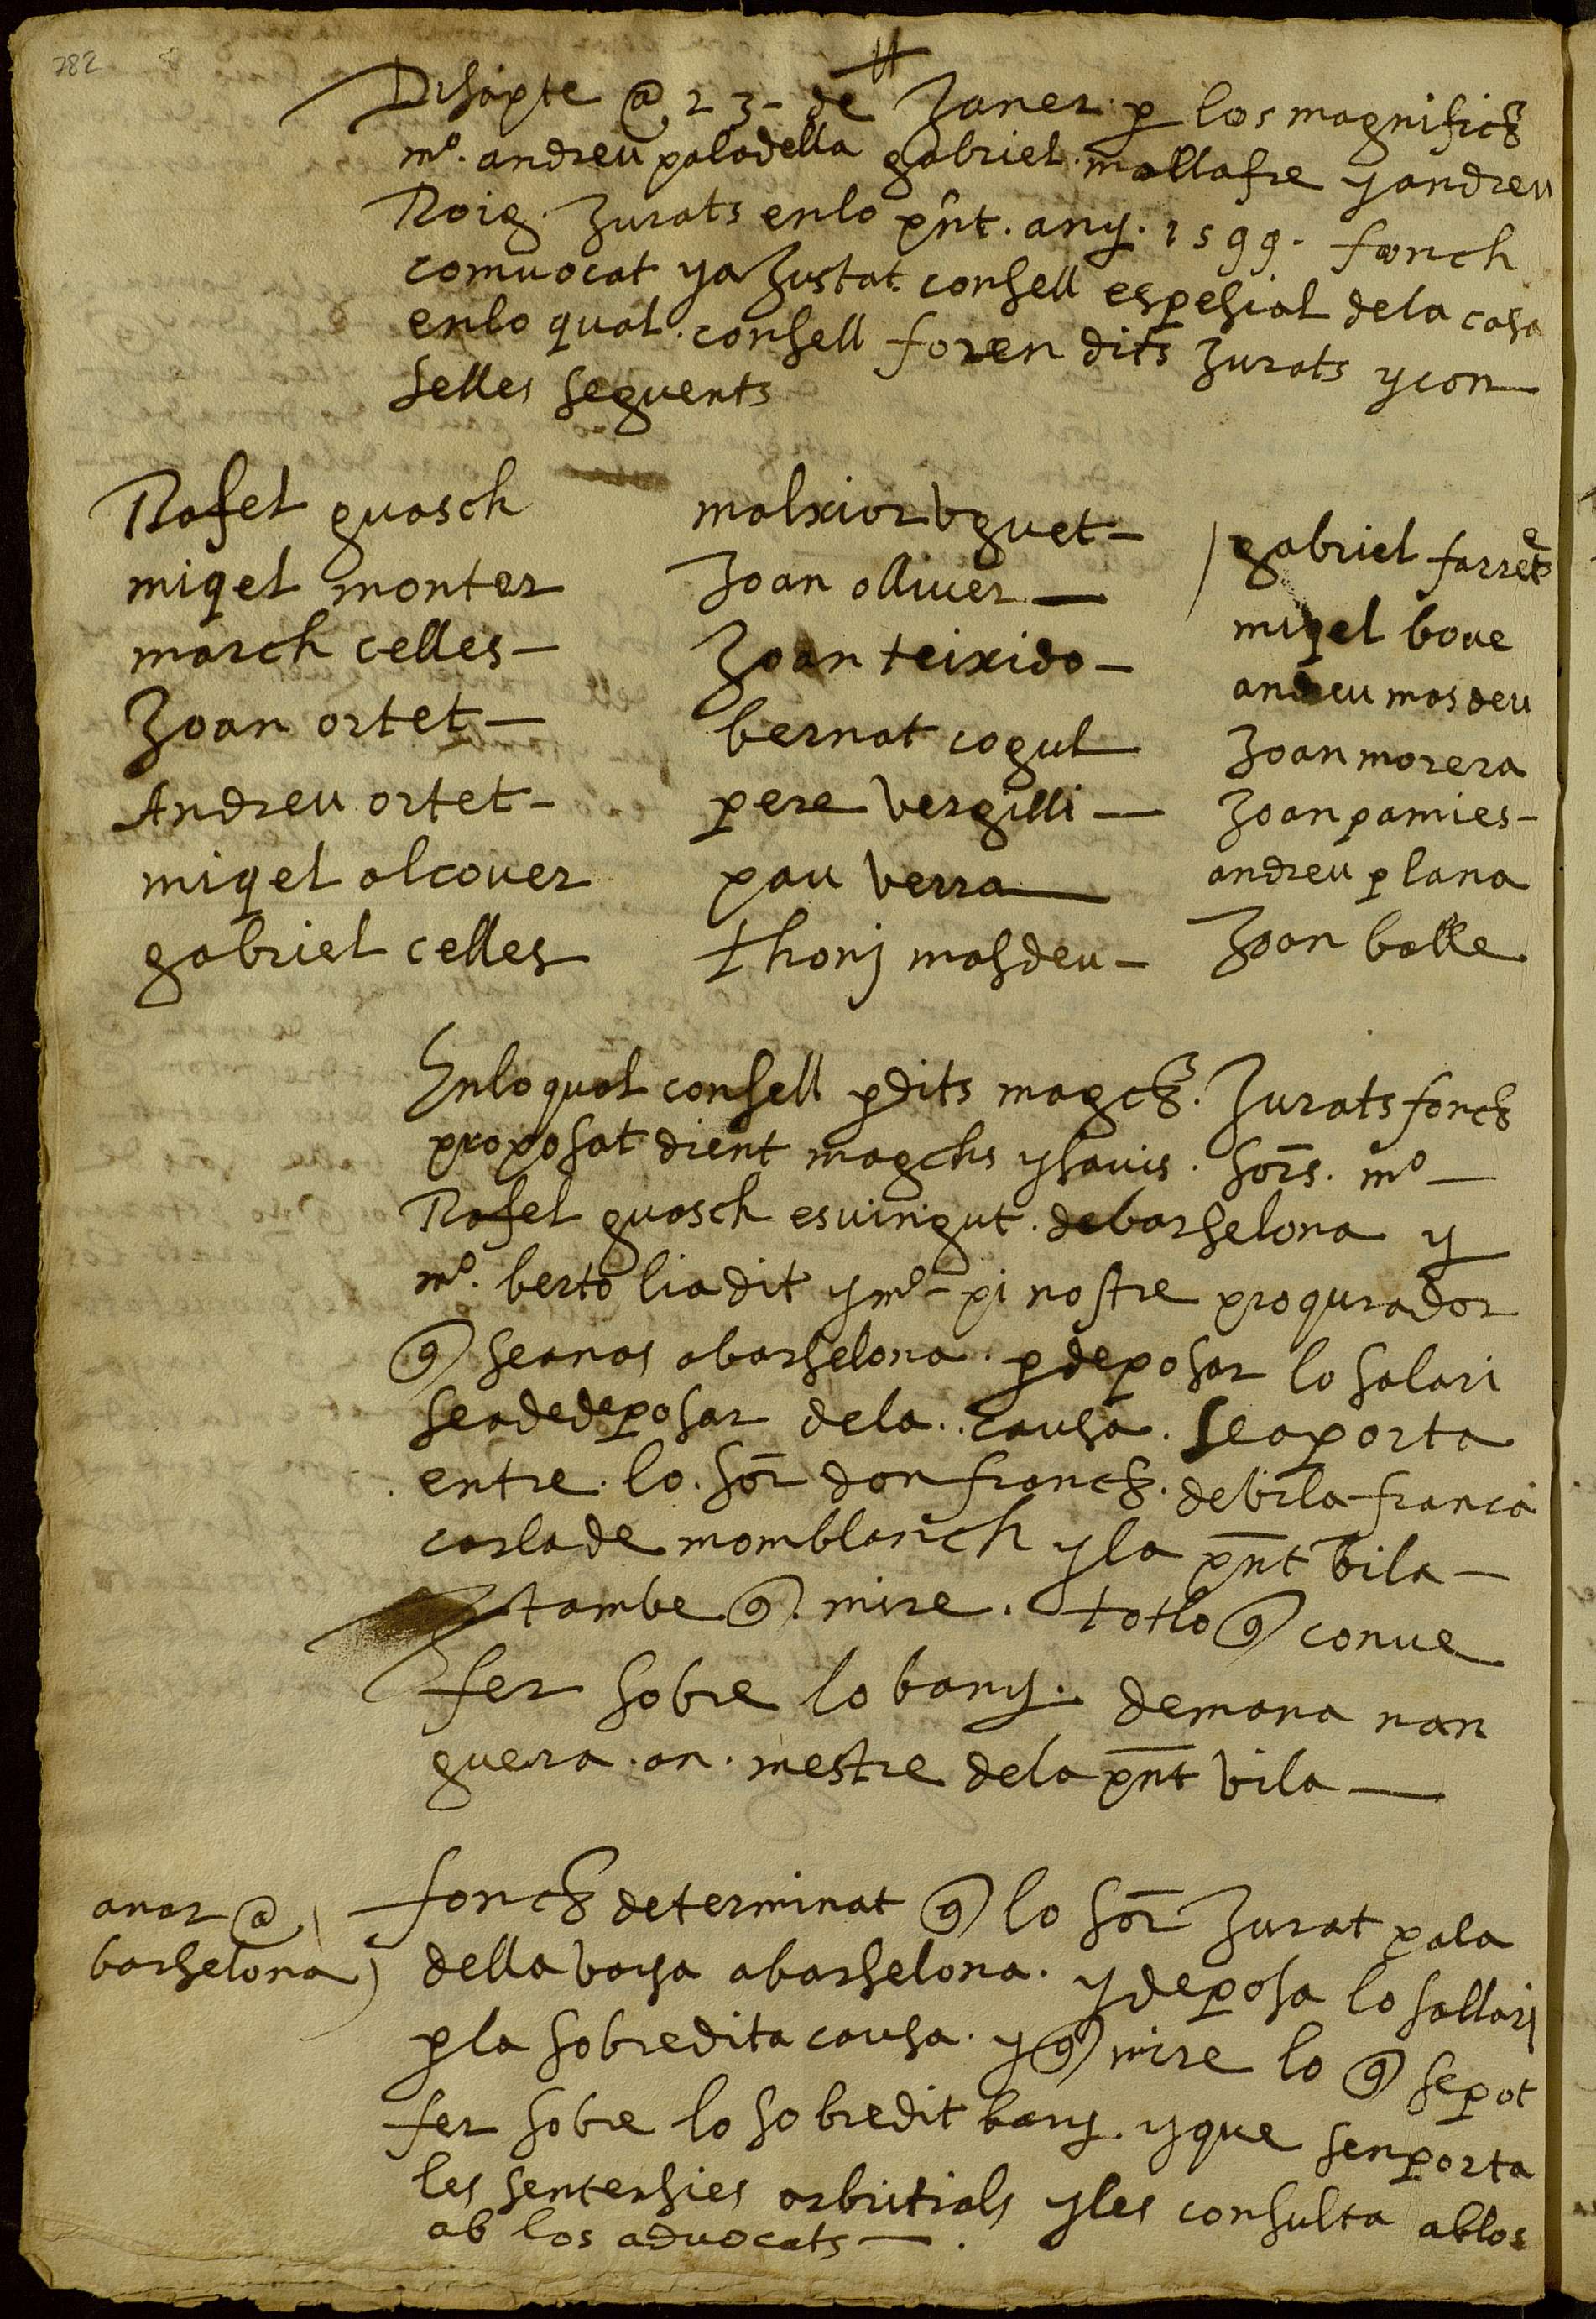 782
Disapte @ 23 - de Janer p los magnifichs
mº. andreu paladella gabriel mallafre y andreu
Roig. Jurats enlo pnt. any. 1599. fonch
comvocat y aJustat consell espesial dela casa
enlo qual. consell foren dits Jurats y con
selles seguents
Rafel guasch
miqel monter
march celles -
Joan ortet -
Andreu ortet -
miqel alcover
gabriel celles
malxior uguet -
Joan olliver -
Joan teixido -
bernat cogul
pere vergilli -
pau verra
thonj masdeu -
gabriel farrer
miqel bove
andreu masdeu
Joan morera
Joan pamies -
andreu plana
Joan balle
Enlo qual consell p dits magchs. Jurats fonch
proposat dient magchs y savis. sors. mº -
Rafel guasch es vingut. de barselona y
mº. berto li a dit y mº - pi nostre proqurador
q se anas a barselona. p deposar lo salari
sea de deposar dela.. causa. se aporta
entre. lo. sor don franch. de vila franca
carla de momblanch y la pnt vila -
tambe q. mire. tot lo q conve
fer sobre lo bany. demana nan
guera. an. mestre dela pnt vila -
anar @
barselona
fonch determinat q lo sor Jurat pala
della vaya a barselona. y deposa lo sallari
p la sobredita causa. y q mire lo q se pot
fer sobre lo sobredit bany. y que senporta
les sentensies arbitrials y les consulta ab los
ab los advocats - .